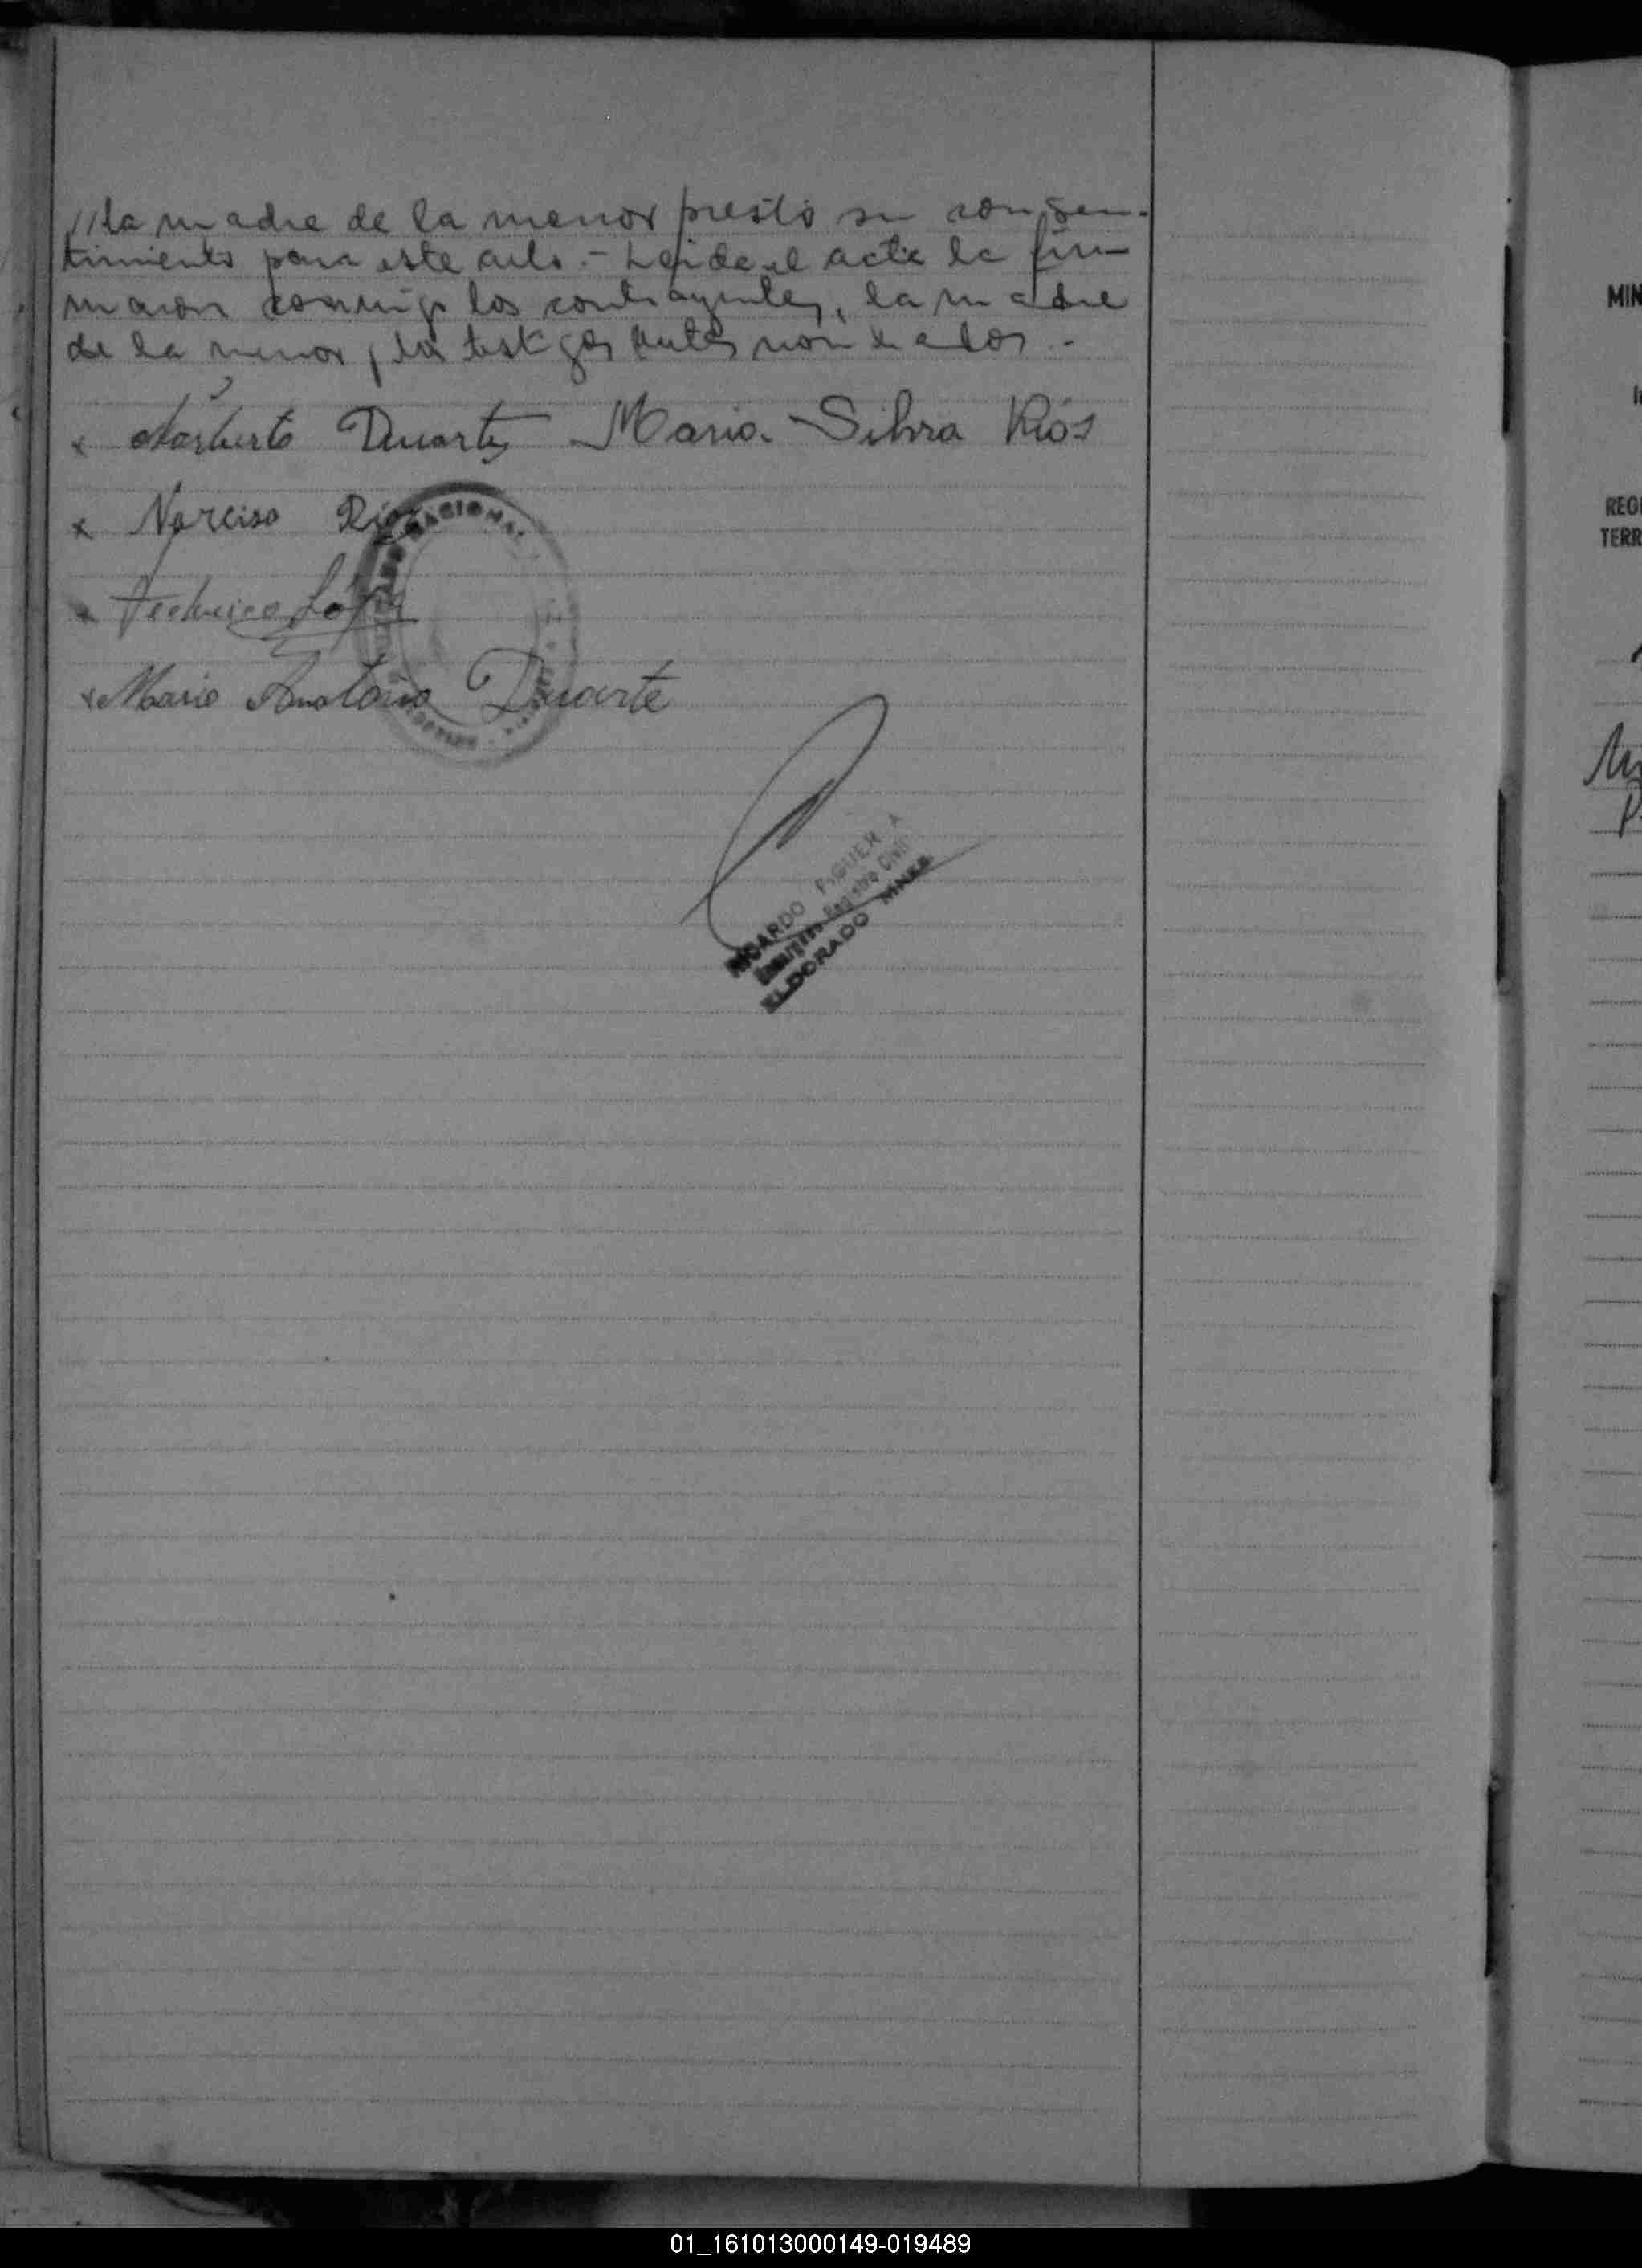 ///La madre de la menor prestó su consen-
timiento para este acto.- Leida el acta la fir-
maron conmigo los contrayentes, la madre
de la menor y los testigos antes nombrados.-
x Norberto Duarte Maria Silvia Ríos
x Narciso Ríos
x Federico López
x Mario Antonio Duarte
NACIONAL
RICARDO FIGUER A
Encargado Registro Civil
ELDORADO MNES
MIN
REGI
TERR
01_161013000149-019489